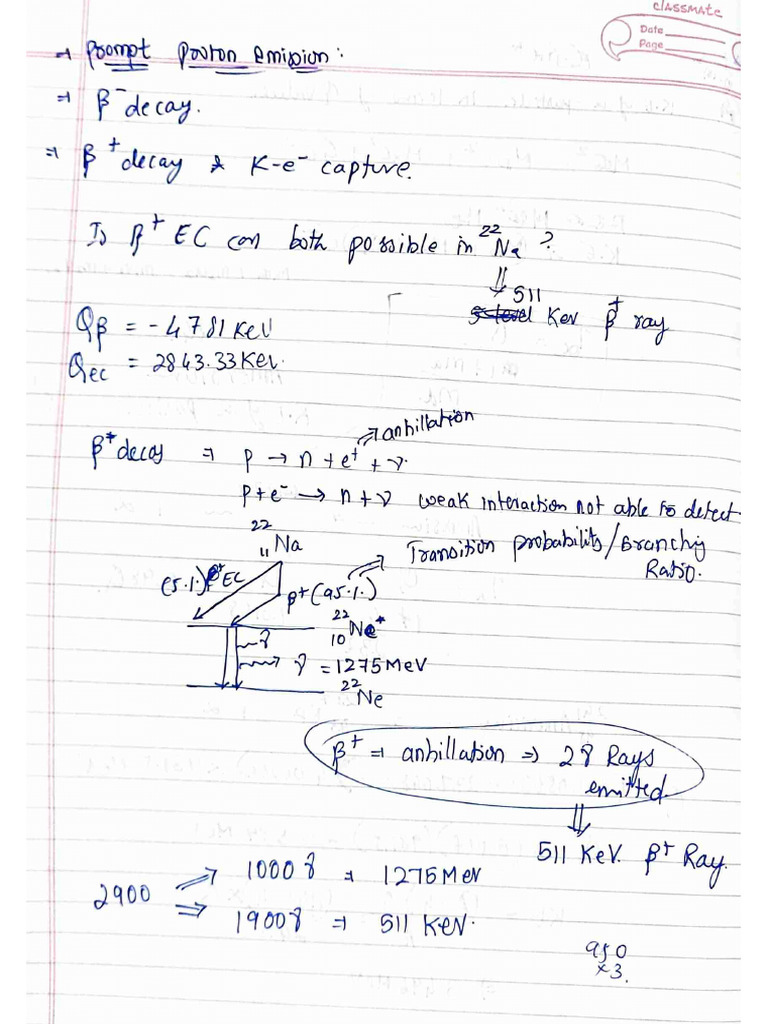 classmate
Date
Page
→ Prompt Proton emission:
⇒ β⁻ decay.
⇒ β⁺ decay & K-e⁻ capture.
Is β⁺ EC can both possible in ²²Na ?
⇓ 511
KeV β⁺ ray
Qβ = -4781 KeV
QEC = 2843.33 KeV.
→ anhillation
β⁺ decay ⇒ p → n + e⁺ + ν.
p + e⁻ → n + ν weak interaction not able to detect
²²₁₁Na
Transition probability/Branching
Ratio.
(5.1.) EC
β⁺ (95.1.)
²²₁₀Ne*
γ
γ = 1275 MeV
²²Ne
β⁺ ⇒ anhillation ⇒ 2γ Rays
emitted.
⇓
511 KeV. β⁺ Ray.
2900 ⇒ 1000γ ⇒ 1275 MeV
⇒ 1900γ ⇒ 511 KeV.
950
×3.